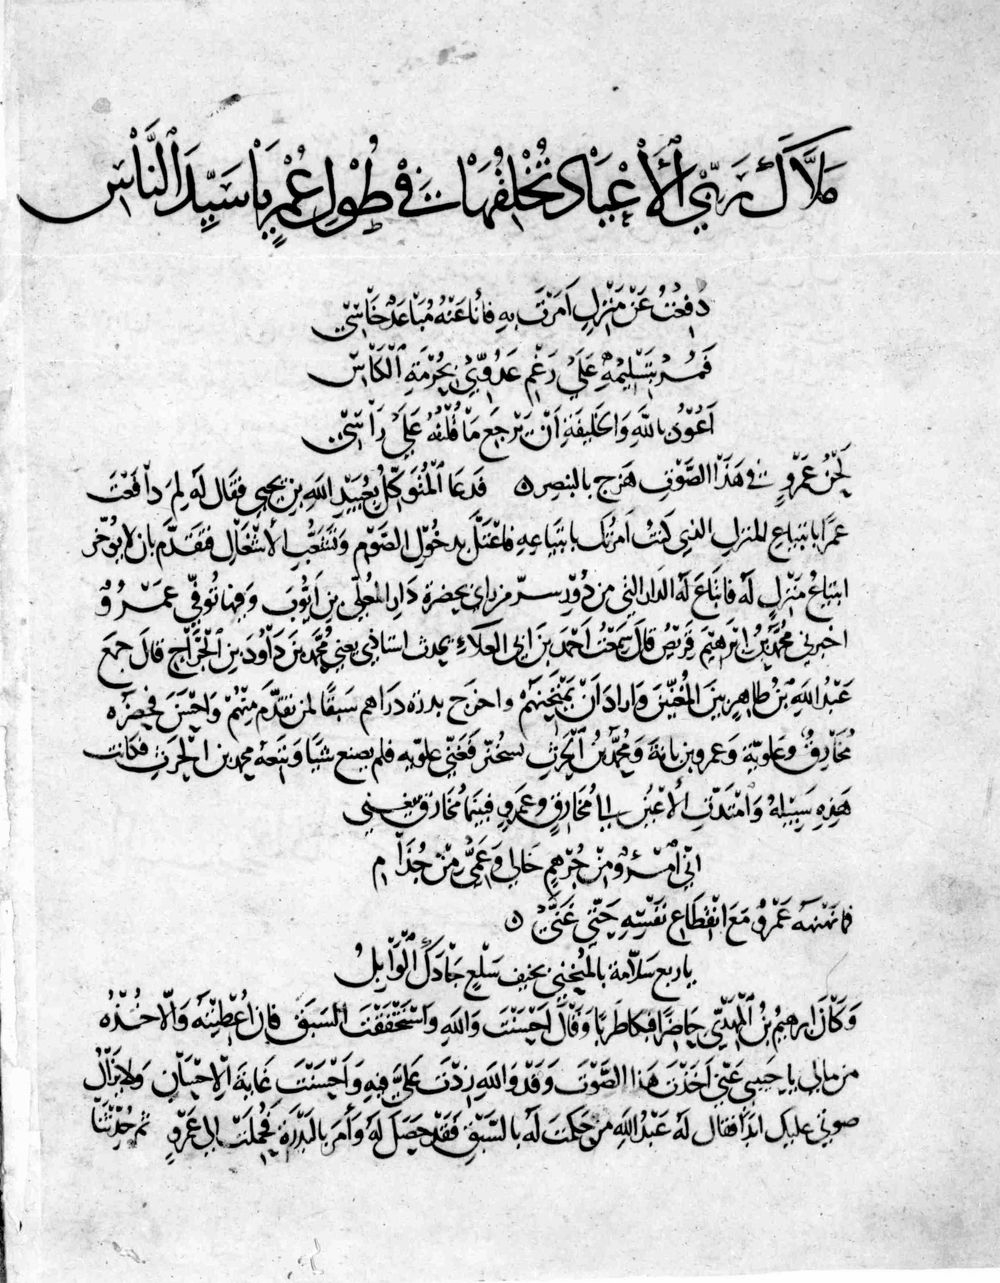 مَلَّاكَ رَبِّي ٱلْأَعْيَادَ تُخْلِقُهَا فِي طُوْلِ عُمْرٍ يَا سَيِّدَ ٱلنَّاسِ
دُفِعْتُ عَنْ مَنْزِلٍ اَمَرْتَ بِهِ فَأَنَا عَنْهُ مُبَاعَدٌ خَاسِيْ
فَمُرْ بِتَسْلِيْمِهِ عَلَى رَغْمِ عَدُوِّيْ بِحُرْمَةِ ٱلْكَاسِ
اَعُوْذُ بِاللّٰهِ وَالْخَلِيفَةِ اَنْ يَرْجِعَ مَا قُلْتُهُ عَلَى رَاْسِيْ
لَحْنُ عَمْرٍو فِي هَذَا الصَّوْتِ هَزَج بالبنصر ه فَدعَا ٱلْمُتَوَكِّلُ بِعُبَيْدِ اللّٰهِ بن يحيى فقَال لَهُ لِمَ دَاْفَعْتَ
عمرًا بابتياعِ المنزل الذي كنتُ اَمرتك بابتياعهِ فَاعْتَلَّ بدخُوْلِ الصَّوْمِ وَتَشَعُّبِ ٱلْأَشْغَالِ فتقدَّم بان لا يوخّر
ابتياعُ مَنْزِلٍ لَهُ فابتَاعَ لَهُ الدَارَ التي من دُوْرِ سرّ من راى بحضرة دَارِ المُعَلَّى بن اَيُّوْبَ وَفِيْهَا تُوُفِّيَ عَمْرٌو
اخبرني مُحَمَّدُ بْنُ ابْرٰهِيْمَ قرَيْصٌ قالَ سَمِعْتُ اَحْمَدَ بنَ ابي العَلَاءِ يحدث استاذي يعني مُحَمَّدَ بْنَ دَاوُدَ بْنِ ٱلْجَرَّاح قالَ جمعَ
عَبْدُ اللّٰهِ بْنُ طَاهِرٍ بَيْنَ المُغَنِّيْنَ وَارادَ اَنْ يَمْتَحِنَهُمْ واخرَج بدرَة دَرَاهم سَبَقًا لمن تقدَّم مِنْهُمْ وَاَحْسَنَ فَحَضَرَهُ
مُخَارِقٌ وَعَلَّوَيْهِ وَعمرو بن بانَة وَمُحَمَّدُ بْنُ ٱلْحٰرِثِ بسخنّر فَغَنَّى عَلّويهِ فلم يصنع شيًا وَتَبعَهُ محمد بن الحرث فكانت
هَذِهِ سَبِيْلهُ وَامْتَدَّتِ ٱلْأَعْيُن اِلىٰ مُخَارِقٍ وَعَمرٍو فبَدَا مُخَارِق يغني
اِنِّي ٱمْرُؤٌ مِنْ جُرْهُمٍ خَالِي وَعَمِّيْ مِنْ جُذَاْمِ
فما نهنهَهُ عَمْرٌو مَعَ انْقِطَاعِ نَفَسِهِ حَتّٰى غَنّٰى ه
يا ربع سَلّامة بالمُنْحَنى بخيف سَلْعٍ جَادَكَ ٱلْوَابِلُ
وَكَانَ ابرهيمُ بْنُ ٱلْمَهْدِيِّ حَاضِرًا فبكا طَرَبًا وَقَالَ اَحْسَنْتَ وَاللّٰهِ وَاسْتَحْقَقْتَ السَبَق فَاِن اُعْطِيْتَهُ وَاِلّا خُذْهُ
من مالي يا حبيبي عَنّي اَخَذْتَ هَذا الصَّوْتَ وَقَدْ وَاللّٰهِ زِدْتَ عَلَيَّ فِيهِ وَاَحْسَنْتَ غَايَةَ ٱلْاِحْسَانِ وَلا يزَالُ
صوتي عليك اَبَدًا فقال لَهُ عَبْدُ اللّٰهِ من حكمتَ لَهُ بالسَّبَقِ فَقَدْ حَصَلَ لَهُ وَاَمرَ بالبَدْرَةِ فَحُمِلَتْ اِلىٰ عَمْرٍو ثم حُدِّثْنَا